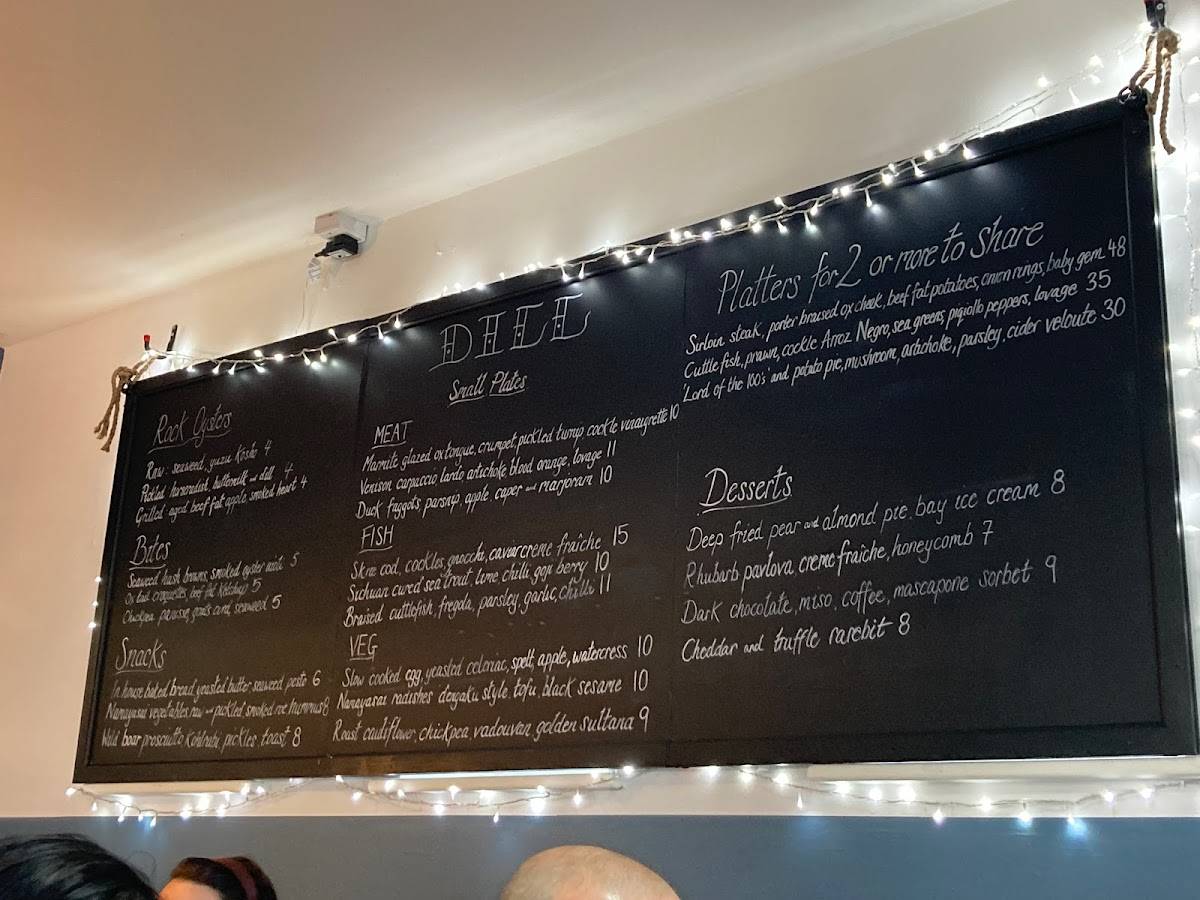 Rock Oysters
Raw: seaweed, yuzu kosho 4
Pickled horseradish, buttermilk and dill 4
Grilled aged beef fat, apple, smoked heart 4
Bites
Seaweed hash browns, smoked oyster aioli 5
Ox tail croquettes, beef fat ketchup 5
Chickpea panisse, goats curd, seaweed 5
Snacks
In house baked bread, yeasted butter, seaweed pesto 6
Namayasai vegetables, raw and pickled, smoked roe hummus 8
Wild boar prosciutto, Kohlrabi, pickles, toast 8
DILL
Small Plates
MEAT
Marmite glazed ox tongue, crumpet, pickled turnip, cockle vinaigrette 10
Venison carpaccio, lardo, artichoke, blood orange, lovage 11
Duck faggots, parsnip, apple, caper and marjoram 10
FISH
Skrei cod, cockles, gnocchi, caviar creme fraîche 15
Sichuan cured sea trout, lime chilli, goji berry 10
Braised cuttlefish, fregola, parsley, garlic, chilli 11
VEG
Slow cooked egg, yeasted celeriac, spelt, apple, watercress 10
Namayasai radishes dengaku style, tofu, black sesame 10
Roast cauliflower, chickpea, vadouvan, golden sultana 9
Platters for 2 or more to share
Sirloin steak, porter braised ox cheek, beef fat potatoes, onion rings, baby gem 48
Cuttle fish, prawn, cockle Arroz Negro, sea greens, piquillo peppers, lovage 35
'Lord of the 100's' and potato pie, mushroom, artichoke, parsley, cider veloute 30
Desserts
Deep fried pear and almond pie, bay ice cream 8
Rhubarb pavlova, creme fraîche, honeycomb 7
Dark chocolate, miso, coffee, mascapone sorbet 9
Cheddar and truffle rarebit 8